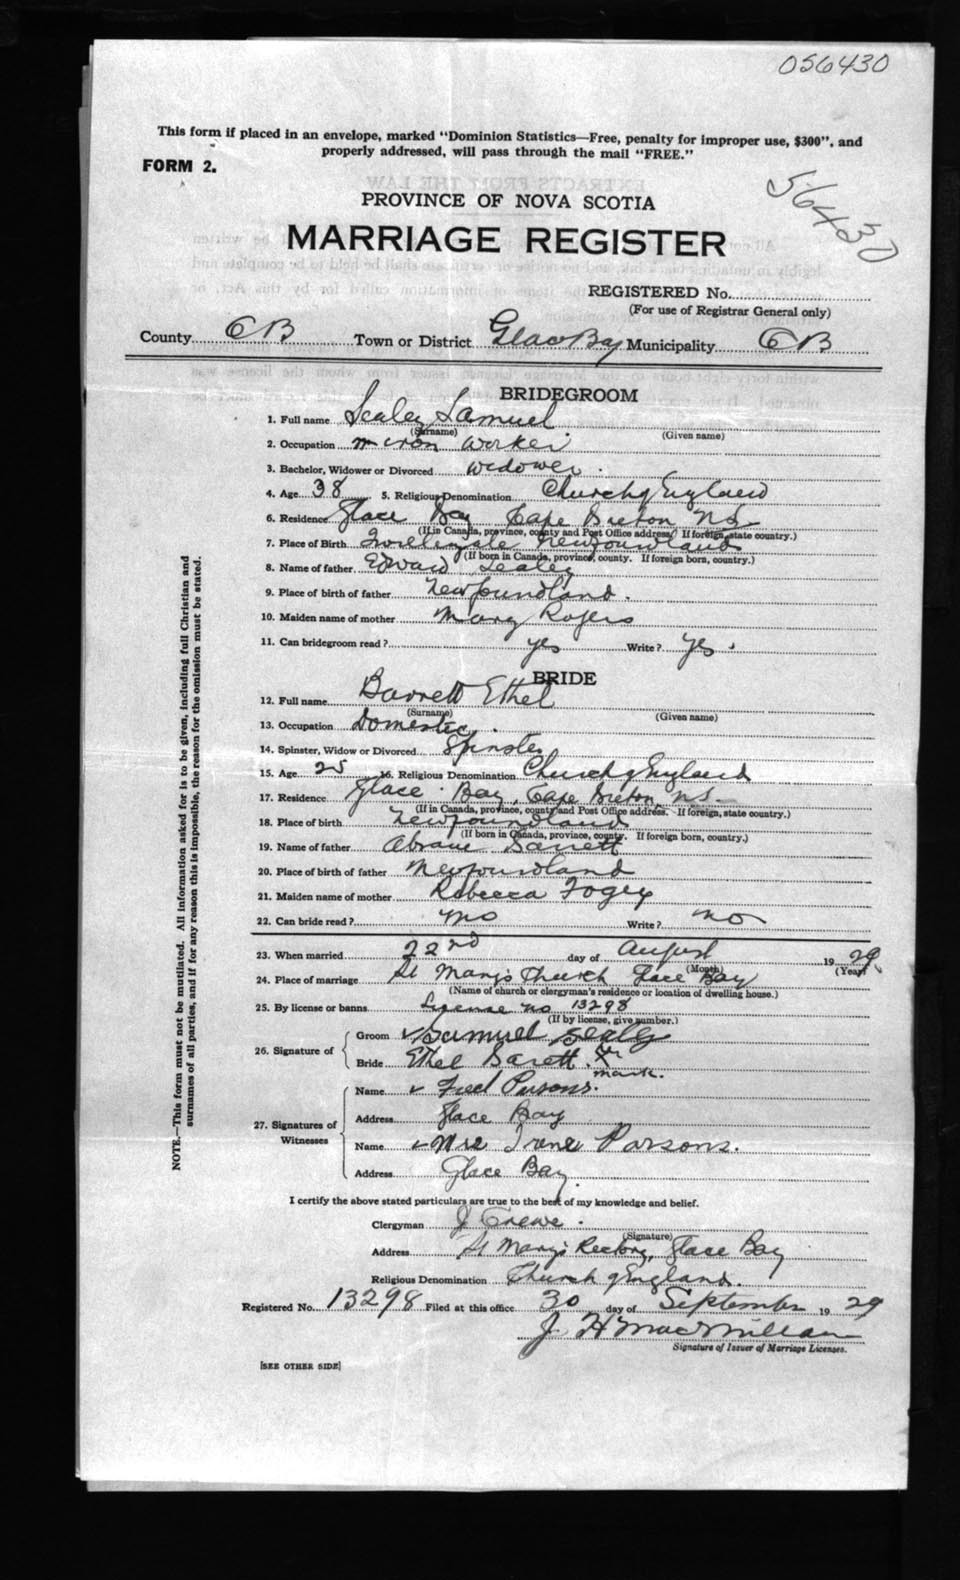 056430
This form if placed in an envelope, marked "Dominion Statistics—Free, penalty for improper use, $300", and
properly addressed, will pass through the mail "FREE."
FORM 2.
56430
PROVINCE OF NOVA SCOTIA
MARRIAGE REGISTER
REGISTERED No.
(For use of Registrar General only)
County CB Town or District Glace Bay Municipality CB
BRIDEGROOM
1. Full name Sealey Samuel
(Surname) (Given name)
2. Occupation iron worker
3. Bachelor, Widower or Divorced widower.
4. Age 38 5. Religious Denomination Church of England
6. Residence Glace Bay Cape Breton NS
(If in Canada, province, county and Post Office address. If foreign, state country.)
7. Place of Birth Twillingate Newfoundland
(If born in Canada, province, county. If foreign born, country.)
8. Name of father Edward Sealey
9. Place of birth of father Newfoundland.
10. Maiden name of mother Mary Rogers
11. Can bridegroom read? yes Write? yes.
BRIDE
12. Full name Barrett Ethel
(Surname) (Given name)
13. Occupation Domestic.
14. Spinster, Widow or Divorced Spinster
15. Age 25 16. Religious Denomination Church of England
17. Residence Glace Bay, Cape Breton NS
(If in Canada, province, county and Post Office address. If foreign, state country.)
18. Place of birth Newfoundland
(If born in Canada, province, county. If foreign born, country.)
19. Name of father Abram Barrett
20. Place of birth of father Newfoundland
21. Maiden name of mother Rebecca Fogey
22. Can bride read? no Write? no
23. When married 22nd day of August 1929
(Month) (Year)
24. Place of marriage St Mary's Church Glace Bay
(Name of church or clergyman's residence or location of dwelling house.)
25. By license or banns License no 13298
(If by license, give number.)
26. Signature of
Groom Samuel Sealey
Bride Ethel Barett X her
mark.
27. Signatures of Witnesses
Name Fred Parsons.
Address Glace Bay
Name Mrs Irene Parsons.
Address Glace Bay.
I certify the above stated particulars are true to the best of my knowledge and belief.
Clergyman J Crewe.
(Signature)
Address St Mary's Rectory, Glace Bay
Religious Denomination Church of England.
Registered No. 13298 Filed at this office 30 day of September 1929
J. H MacMillan
Signature of Issuer of Marriage Licenses.
[SEE OTHER SIDE]
NOTE.—This form must not be mutilated. All information asked for is to be given, including full Christian and
surnames of all parties, and if for any reason this is impossible, the reason for the omission must be stated.